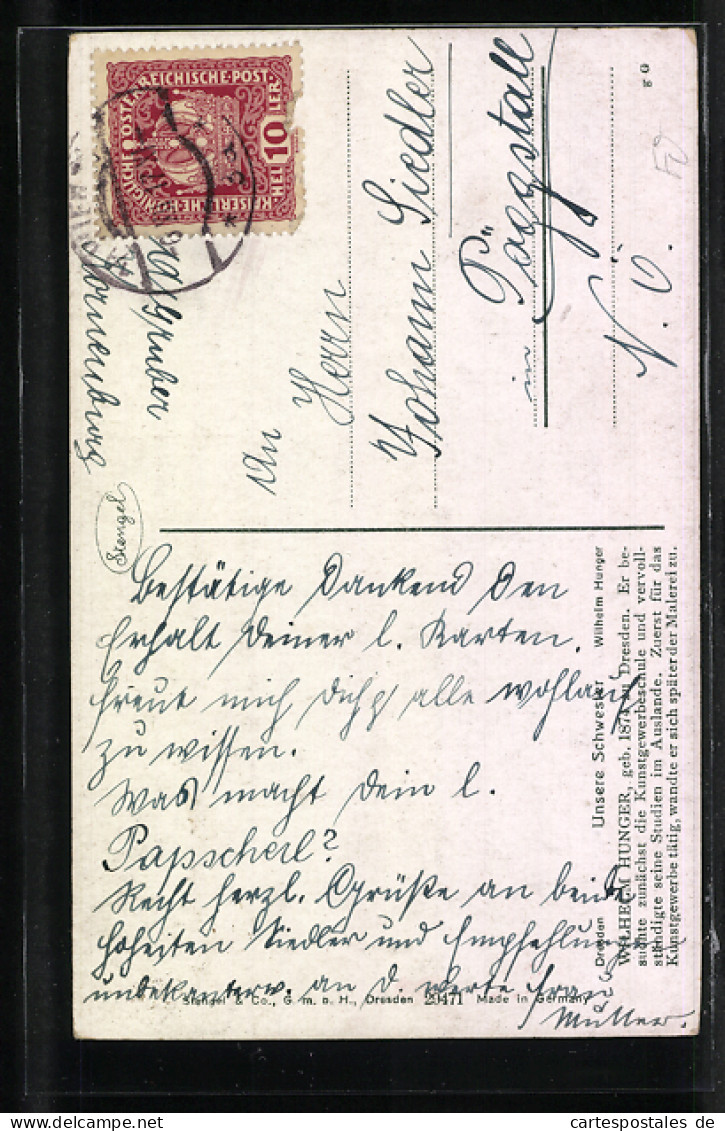 KAISERLICHE KÖNIGLICHE POST
ÖSTERREICHISCHE
HELLER 10
Korneuburg
An Herrn
Johann Siedler
in Pöggstall
N. Ö.
Bestätige Dankend den
Erhalt Deiner l. Karten.
freut mich dich alle wohlauf
zu wissen.
Was macht Dein l.
Papscherl?
Recht herzl. Grüße an beide
Hoheiten Siedler und Empfehlung
unbekanterw. an d. werte Frau
Mutter.
Unsere Schwester Wilhelm Hunger
Dresden
WILHELM HUNGER, geb. 1874 zu Dresden. Er be-
suchte zunächst die Kunstgewerbeschule und vervoll-
ständigte seine Studien im Auslande. Zuerst für das
Kunstgewerbe tätig, wandte er sich später der Malerei zu.
Stengel & Co., G. m. b. H., Dresden 29471 Made in Germany
cartespostales de